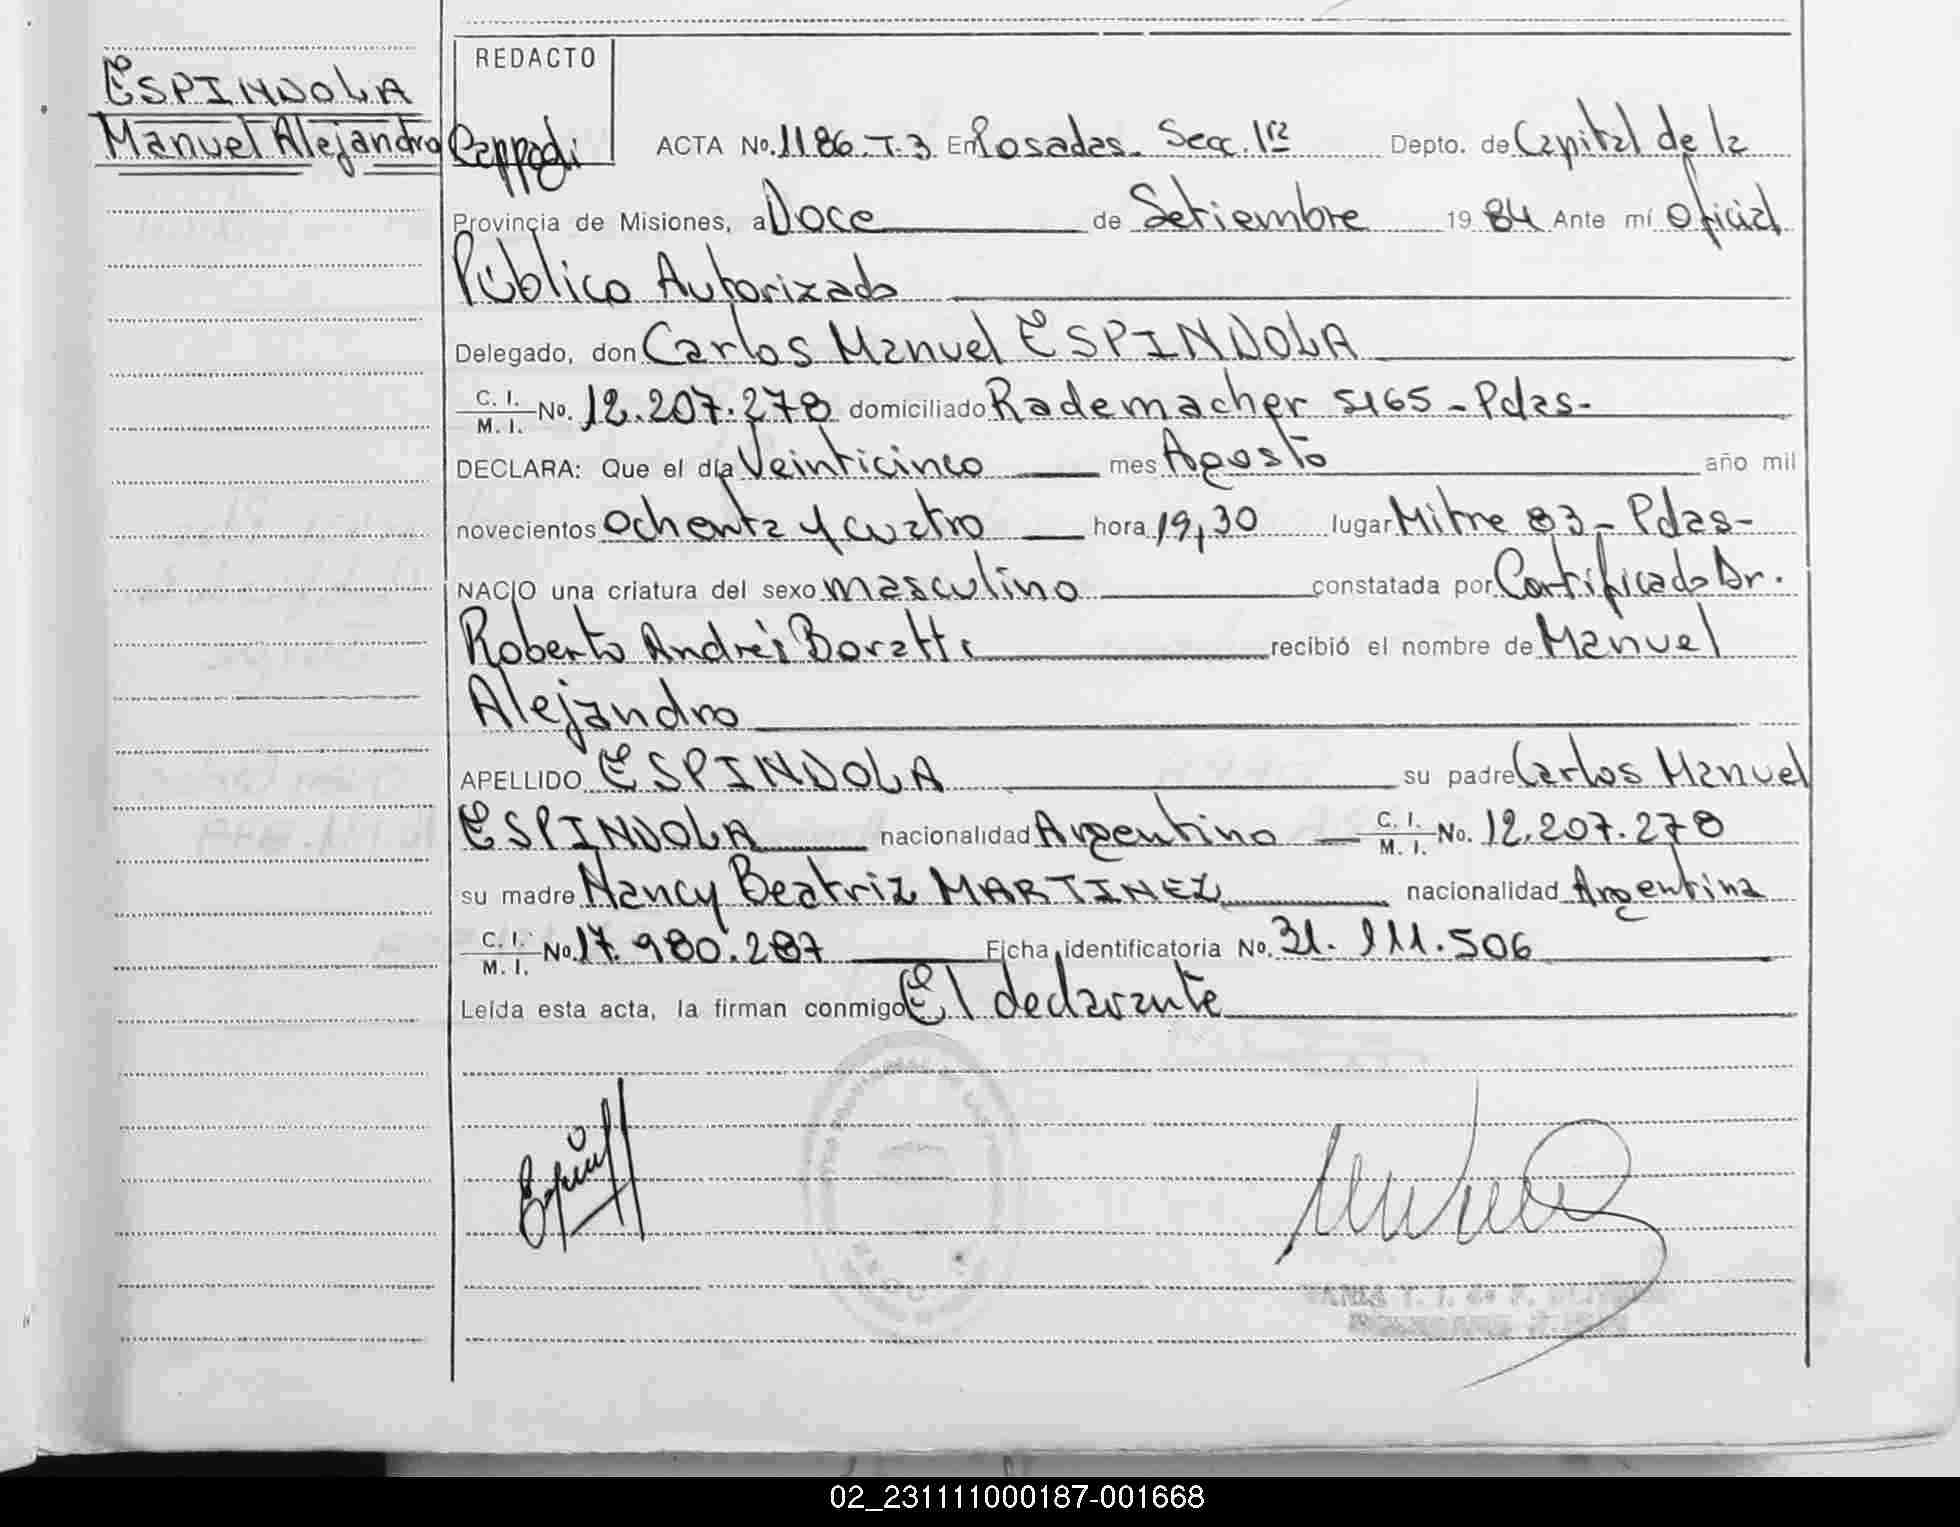 ESPINDOLA
Manuel Alejandro
REDACTO
ACTA No. 1186. T. 3. En Posadas. Secc. 1ra Depto. de Capital de la
Provincia de Misiones, a Doce de Setiembre 1984 Ante mí Oficial
Público Autorizado
Delegado, don Carlos Manuel ESPINDOLA
C. I. / M. I. No. 12.207.278 domiciliado Rademacher 5165 - Pdas-
DECLARA: Que el día Veinticinco mes Agosto año mil
novecientos Ochenta y cuatro hora 19,30 lugar Mitre 83 - Pdas-
NACIO una criatura del sexo masculino constatada por Certificado Dr.
Roberto Andrés Boratti recibió el nombre de Manuel
Alejandro
APELLIDO ESPINDOLA su padre Carlos Manuel
ESPINDOLA nacionalidad Argentino C. I. / M. I. No. 12.207.278
su madre Nancy Beatriz MARTINEZ nacionalidad Argentina
C. I. / M. I. No. 17.980.287 Ficha identificatoria No. 31.111.506
Leída esta acta, la firman conmigo El declarante
02_231111000187-001668